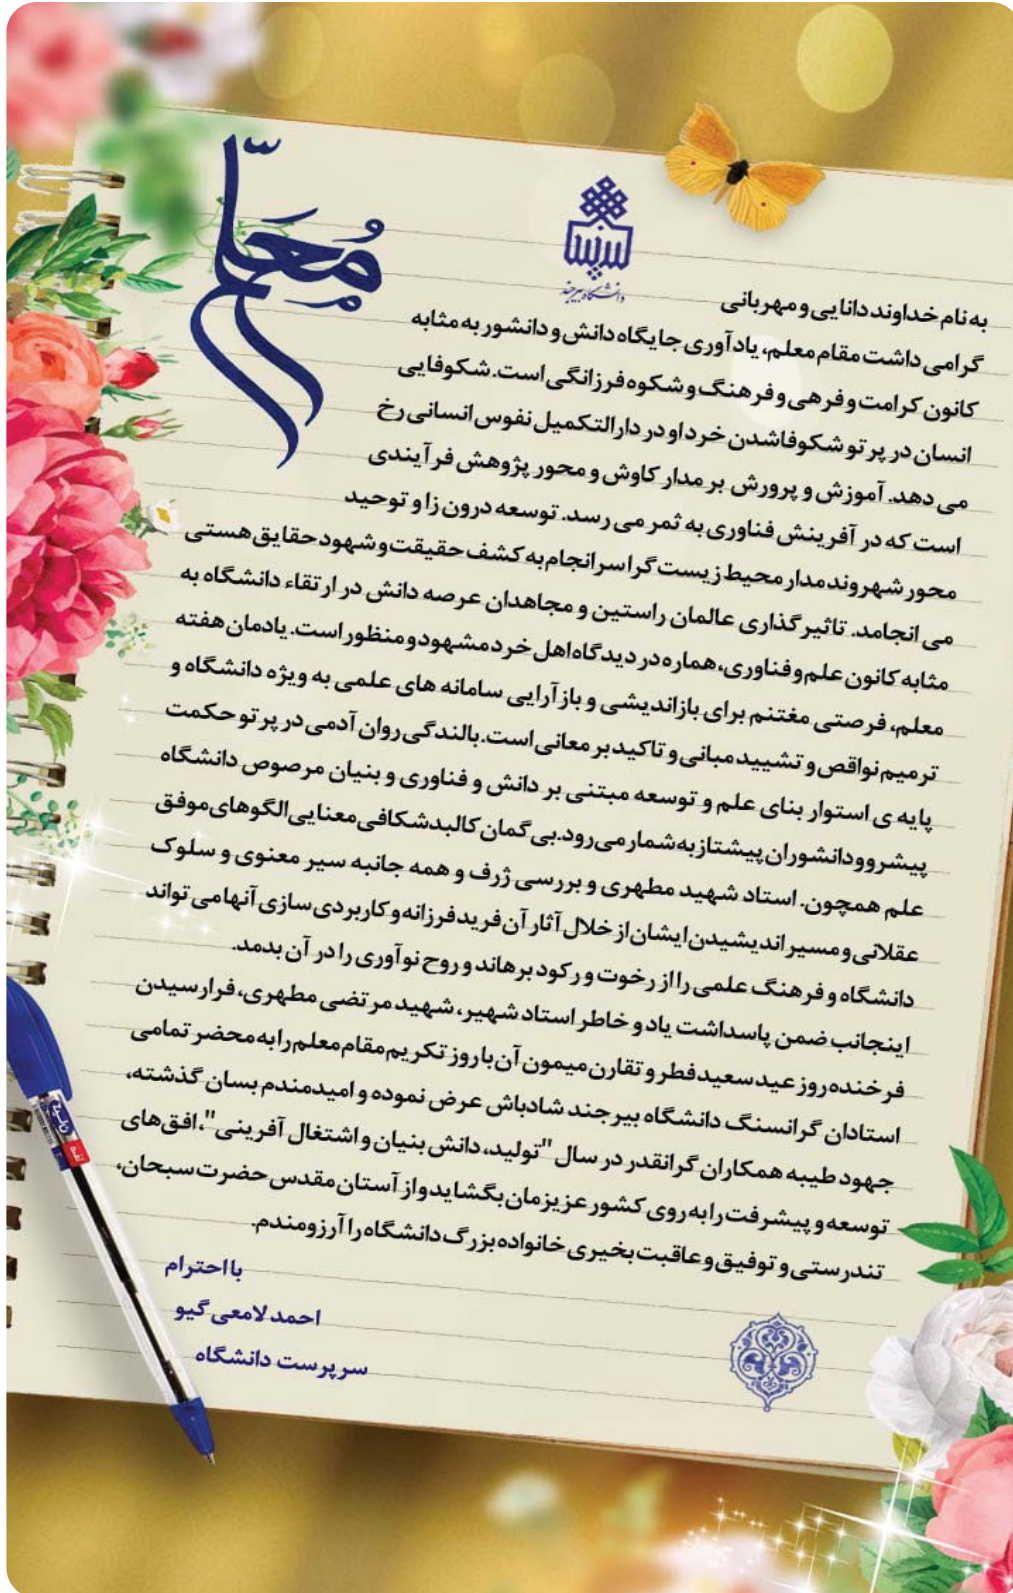 معلم
دانشگاه بیرجند
به نام خداوند دانایی و مهربانی
گرامی داشت مقام معلم، یادآوری جایگاه دانش و دانشور به مثابه
کانون کرامت و فرهی و فرهنگ و شکوه فرزانگی است. شکوفایی
انسان در پرتو شکوفاشدن خرد او در دارالتکمیل نفوس انسانی رخ
می دهد. آموزش و پرورش بر مدار کاوش و محور پژوهش فرآیندی
است که در آفرینش فناوری به ثمر می رسد. توسعه درون زا و توحید
محور شهروندمدار محیط زیست گرا سرانجام به کشف حقیقت و شهود حقایق هستی
می انجامد. تاثیرگذاری عالمان راستین و مجاهدان عرصه دانش در ارتقاء دانشگاه به
مثابه کانون علم و فناوری، هماره در دیدگاه اهل خرد مشهود و منظور است. یادمان هفته
معلم، فرصتی مغتنم برای بازاندیشی و بازآرایی سامانه های علمی به ویژه دانشگاه و
ترمیم نواقص و تشیید مبانی و تاکید بر معانی است. بالندگی روان آدمی در پرتو حکمت
پایه ی استوار بنای علم و توسعه مبتنی بر دانش و فناوری و بنیان مرصوص دانشگاه
پیشرو و دانشوران پیشتاز به شمار می رود. بی گمان کالبدشکافی معنایی الگوهای موفق
علم همچون. استاد شهید مطهری و بررسی ژرف و همه جانبه سیر معنوی و سلوک
عقلانی و مسیر اندیشیدن ایشان از خلال آثار آن فرید فرزانه و کاربردی سازی آنها می تواند
دانشگاه و فرهنگ علمی را از رخوت و رکود برهاند و روح نوآوری را در آن بدمد.
اینجانب ضمن پاسداشت یاد و خاطر استاد شهیر، شهید مرتضی مطهری، فرارسیدن
فرخنده روز عید سعید فطر و تقارن میمون آن با روز تکریم مقام معلم را به محضر تمامی
استادان گرانسنگ دانشگاه بیرجند شادباش عرض نموده و امیدمندم بسان گذشته،
جهود طیبه همکاران گرانقدر در سال "تولید، دانش بنیان و اشتغال آفرینی"، افق های
توسعه و پیشرفت را به روی کشور عزیزمان بگشاید و از آستان مقدس حضرت سبحان،
تندرستی و توفیق و عاقبت بخیری خانواده بزرگ دانشگاه را آرزومندم.
با احترام
احمد لامعی گیو
سرپرست دانشگاه